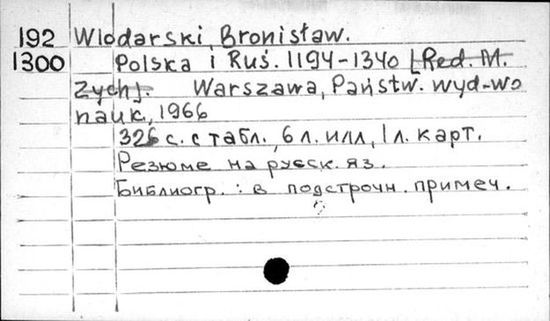 192 Wlodarski, Bronisław.
1300 Polska i Ruś. 1194-1340 [Red. M.
Zych]. Warszawa, Państw. wyd-wo
nauk, 1966
326 с. с табл., 6 л. илл, 1 л. карт.
Резюме на русск. яз.
Библиогр.: в подстрочн. примеч.